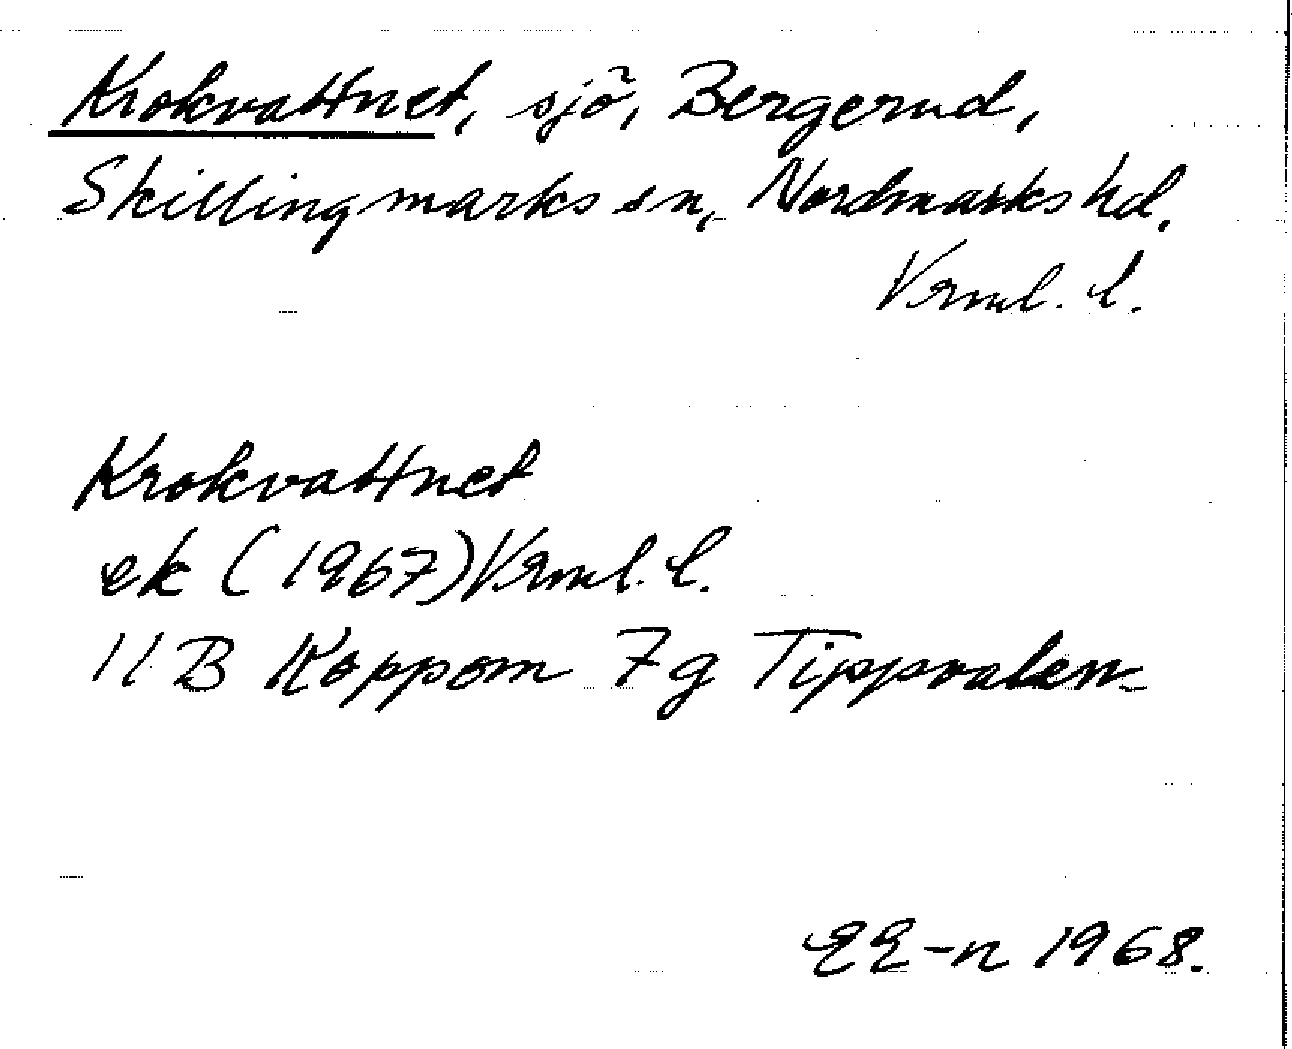 Krokvattnet, sjö, Bergerud,
Skillingmarks sn, Nordmarks hd,
Vrml. l.
Krokvattnet
ek (1967) Vrml. l.
11 B Koppom 7g Tippsvalen
EE-n 1968.